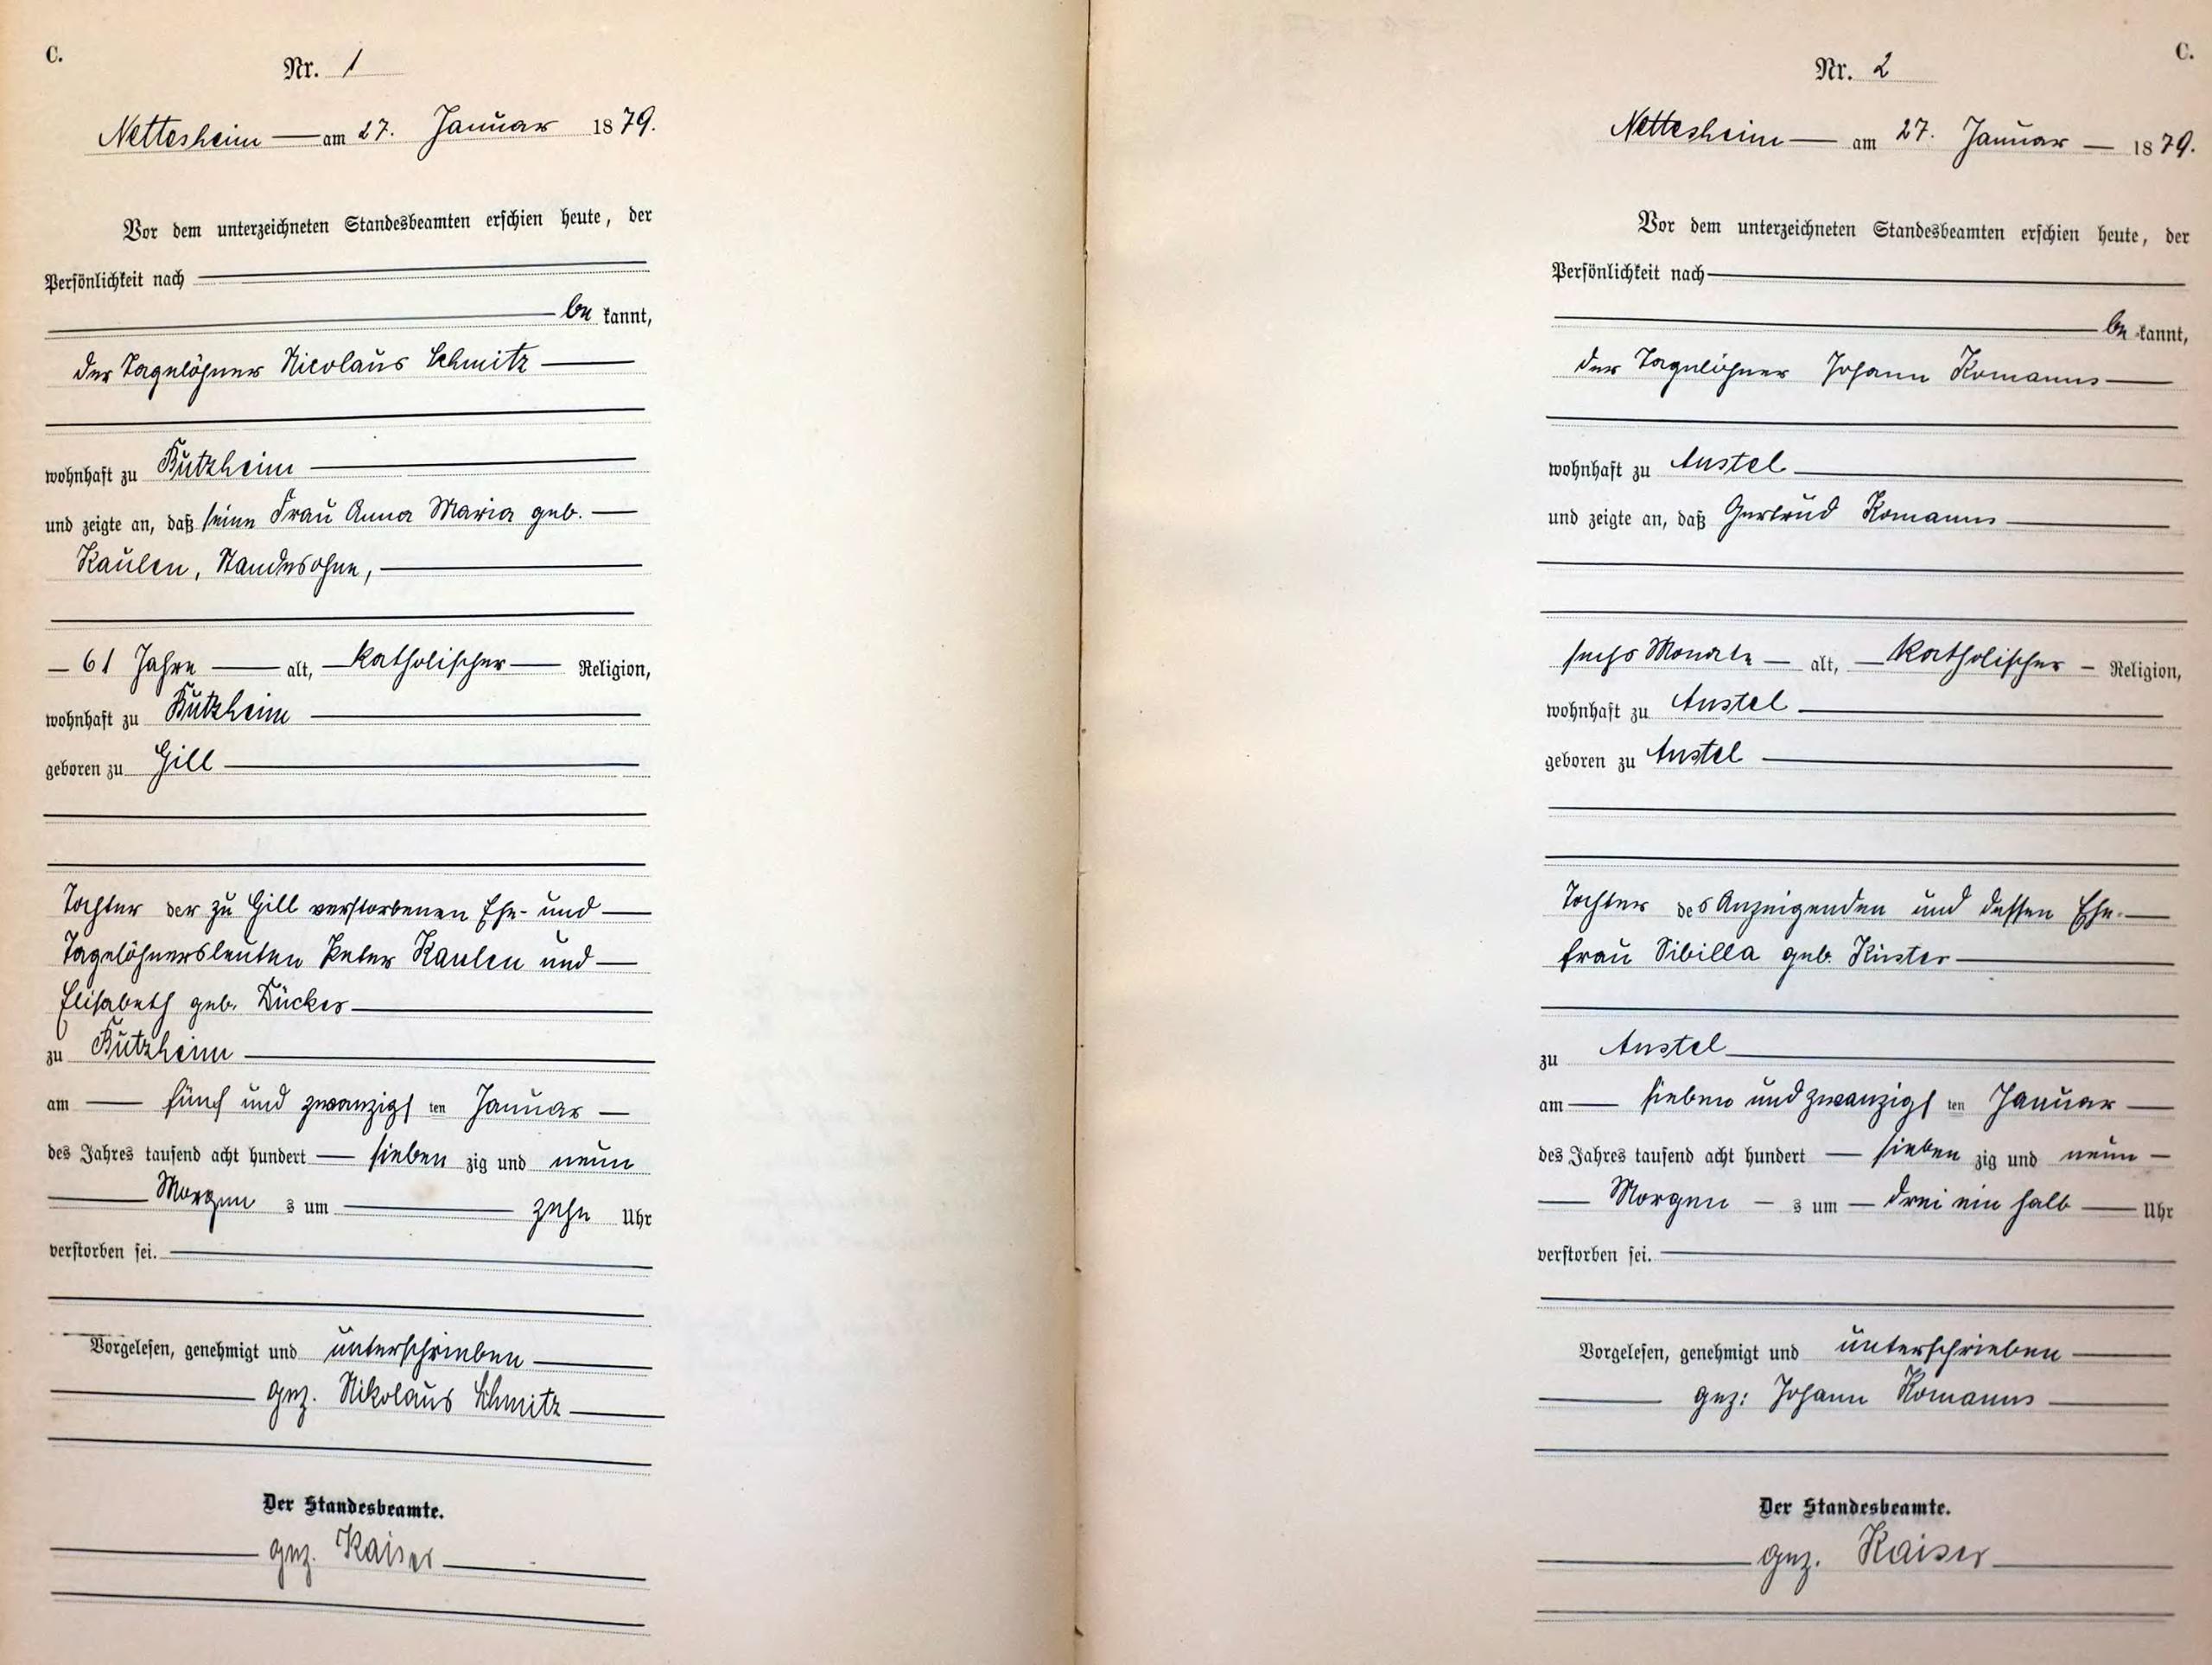 C.
Nr. 1
Nettesheim am 27. Januar 1879.
Vor dem unterzeichneten Standesbeamten erschien heute, der
Persönlichkeit nach
be kannt,
der Tagelöhner Nicolaus Schmitz
wohnhaft zu Bützheim
und zeigte an, daß seine Frau Anna Maria geb.
Kaulen, Standesohne,
61 Jahre alt, katholischer Religion,
wohnhaft zu Bützheim
geboren zu Gill
Tochter der zu Gill verstorbenen Ehe- und
Tagelöhnersleuten Peter Kaulen und
Elisabeth geb. Dückers
zu Bützheim
am fünf und zwanzigs ten Januar
des Jahres tausend acht hundert sieben zig und neun
Morgen s um zehn Uhr
verstorben sei.
Vorgelesen, genehmigt und unterschrieben
gez. Nikolaus Schmitz
Der Standesbeamte.
gez. Kaiser
C.
Nr. 2
Nettesheim am 27. Januar 1879.
Vor dem unterzeichneten Standesbeamten erschien heute, der
Persönlichkeit nach
be kannt,
der Tagelöhner Johann Romanns
wohnhaft zu Anstel
und zeigte an, daß Gertrud Romanns
sechs Monate alt, katholischer Religion,
wohnhaft zu Anstel
geboren zu Anstel
Tochter des Anzeigenden und dessen Ehe-
frau Sibilla geb. Küster
zu Anstel
am sieben und zwanzigs ten Januar
des Jahres tausend acht hundert sieben zig und neun
Morgen s um drei ein halb Uhr
verstorben sei.
Vorgelesen, genehmigt und unterschrieben
gez: Johann Romanns
Der Standesbeamte.
gez. Kaiser